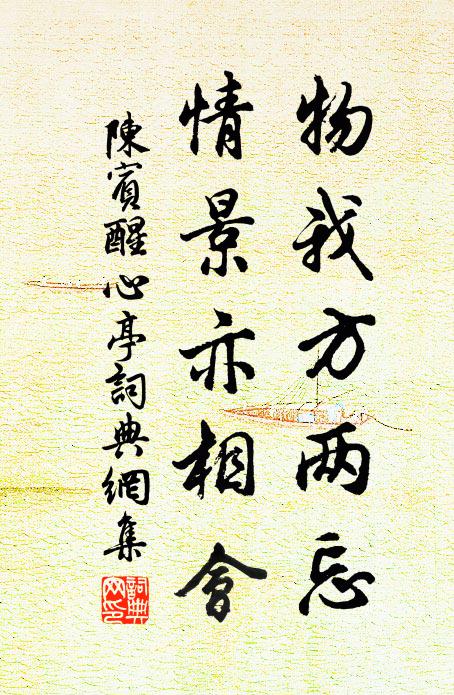 物我方两忘
情景亦相會
陳賓醒心亭詞典網集
詞典网印